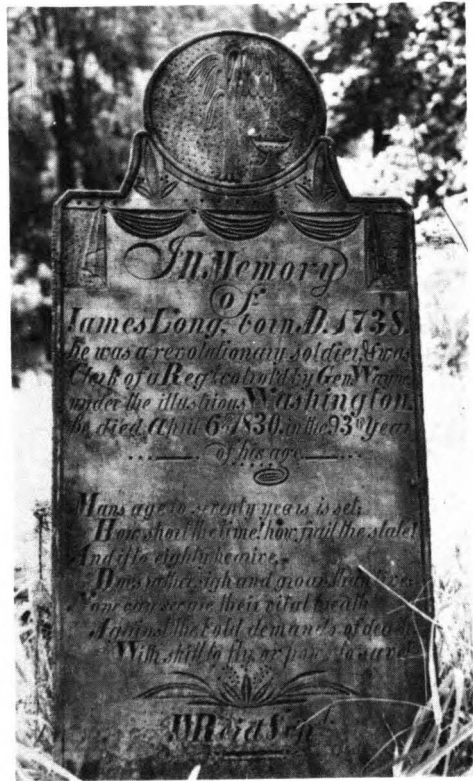 IN Memory
of
James Long, born D. 1738.
he was a revolutionary soldier, & was
Clerk of a Regt controld by Gen Wayne
under the illustrious Washington.
he died April 6th 1830. in the 93rd year
of his age
Mans age to seventy years is set;
How short the time! how frail the state!
And if to eighty he arive,
Does rather sigh and groan than live.
None can secure their vital breath
Against the bold demands of death
With skill to fly, or pow'r to save!
D Reid Scpt.